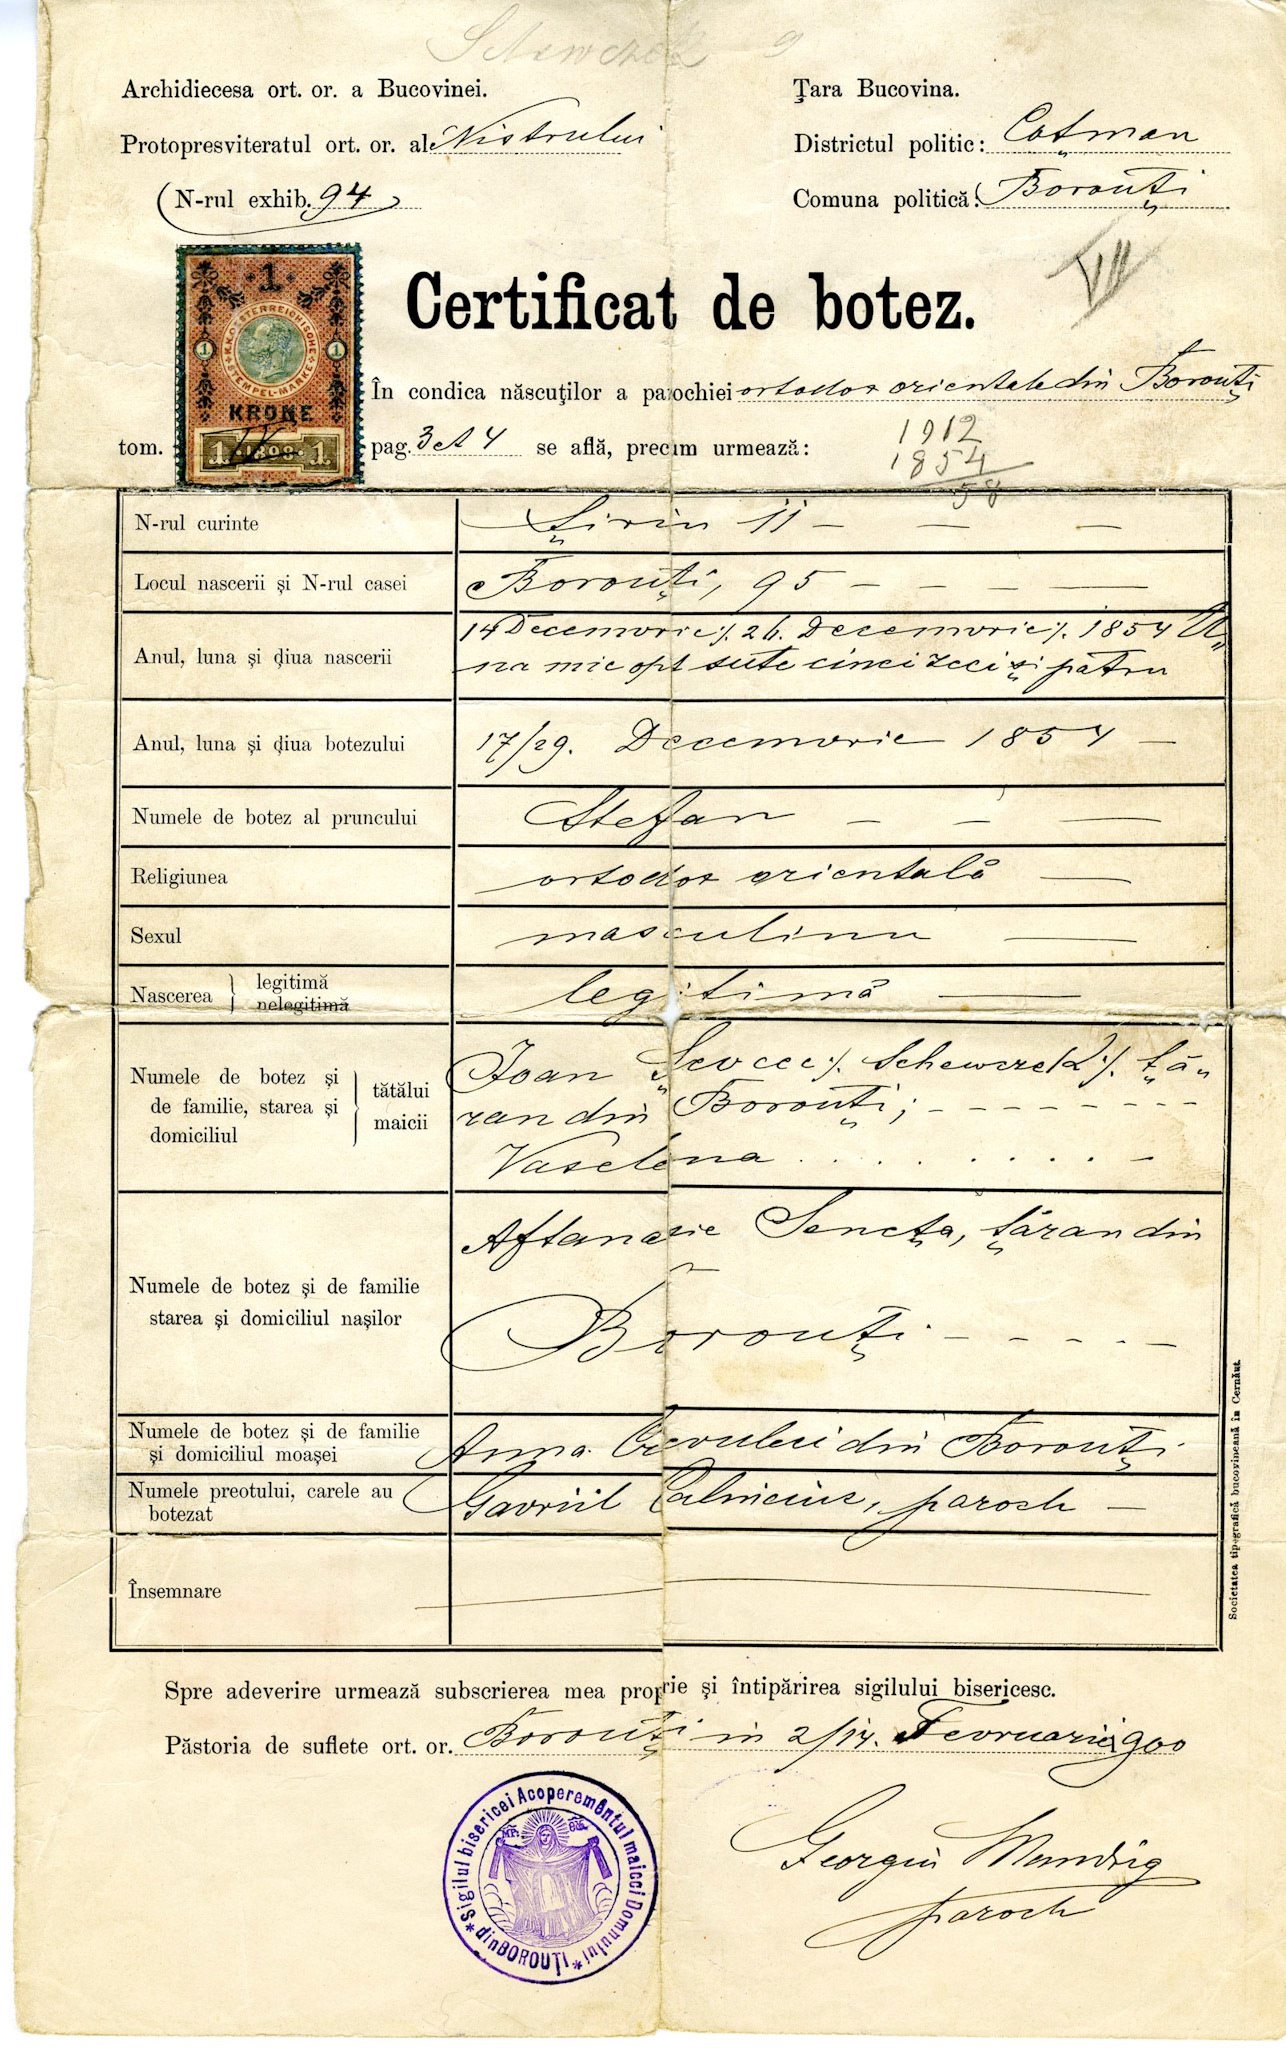 Schewczek 9
Archidiecesa ort. or. a Bucovinei.
Țara Bucovina.
Protopresviteratul ort. or. al Nistrului
Districtul politic: Coțman
(N-rul exhib. 94)
Comuna politică: Borouți
VII
1
K.K. ÖSTERREICHISCHE STEMPEL-MARKE
1 1
KRONE
1 1898 1
Certificat de botez.
În condica născuților a parochiei ortodox orientale din Borouți
tom. IV pag. 3 et 4 se află, precum urmează:
1912
1854
58
N-rul curinte Șirin 11 — — —
Locul nascerii și N-rul casei Borouți, 95 — — —
Anul, luna și ḑiua nascerii 14 Decemvrie ·/. 26. Decemvrie ·/. 1854 U„
na mie opt sute cinci zeci și patru
Anul, luna și ḑiua botezului 17/29. Decemvrie 1854 —
Numele de botez al pruncului Stefan — — —
Religiunea ortodox orientală —
Sexul masculinu —
Nascerea } legitimă
nelegitimă
legitimă —
Numele de botez și de familie, starea și domiciliul } tătălui maicii
Ioan Șevcec ·/. Schewczek ·/. ță„
ran din Borouți; - - - - - - - -
Vaselena . . . . . . . . -
Numele de botez și de familie
starea și domiciliul nașilor
Aftanasie Sencța, țăran din
Borouți - - - - -
Numele de botez și de familie
și domiciliul moașei
Anna din Borouți
Numele preotului, carele au
botezat
Gavriil paroch —
Însemnare
Societatea tipografică bucovineană în Cernăuț.
Spre adeverire urmează subscrierea mea proprie și întipărirea sigilului bisericesc.
Păstoria de suflete ort. or. Borouți in 2/14. Fevruarie 900
* Sigilul bisericei Acoperemêntul maicci Domnului * din BOROUȚI
Georgiu
paroch